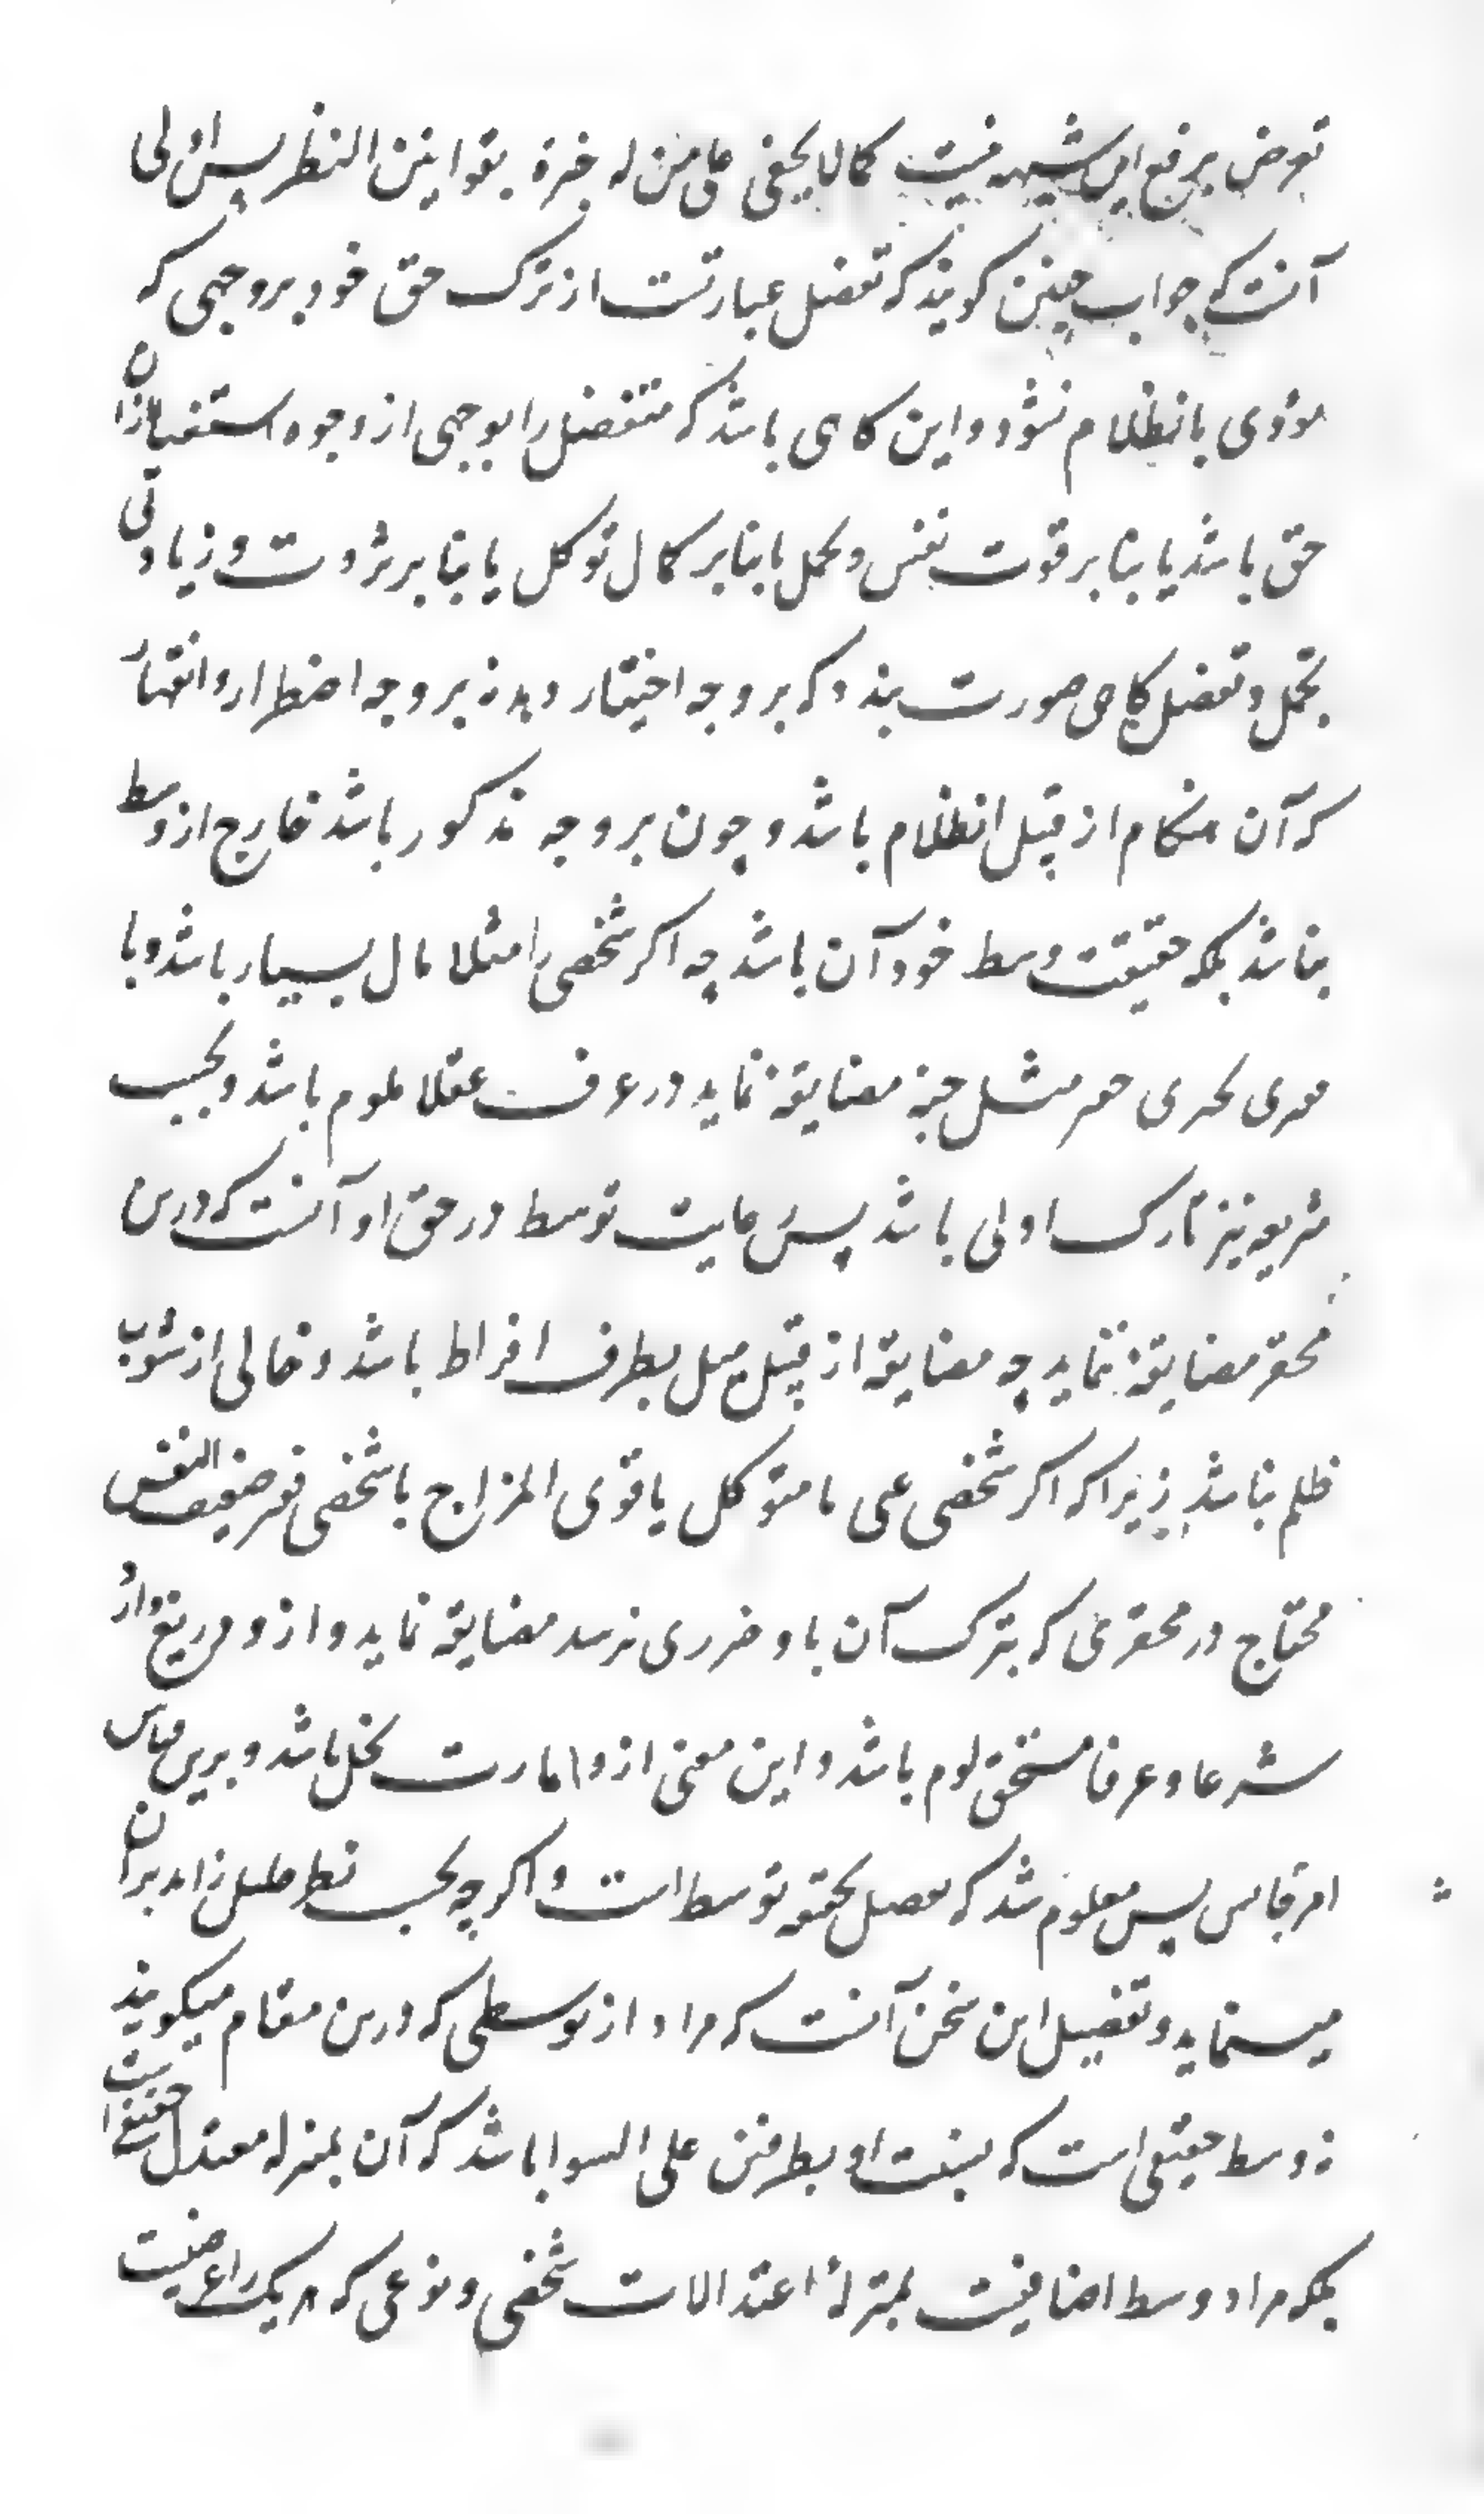 تعرض برفع این شبهه نیست کما لا یخفی علی من له خبرة بقوانین النظر پس اولی
آنست که جواب چنین کویند که تفضل عبارتست از ترک حق خود بر وجهی که
مؤدی بانظلام نشود و این کاهی باشد که متفضل را بوجهی از وجوه استغنا از ان
حق باشد یا بنا بر قوت نفس و تحمل یا بنا بر کمال توکل یا بنا بر ثروت و زیادتی
تجمل و تفضل کاهی صورت بندد که بر وجه اختیار دهد نه بر وجه اضطرار و انقهار
که آن هنکام از قبیل انظلام باشد و چون بر وجه مذکور باشد خارج از وسط
نباشد بلکه حقیقت وسط خود آن باشد چه اکر شخصی را مثلا مال بسیار باشد و با
در عرف عقلا ملوم باشد و بحسب
شریعه نیز تارک اولی باشد پس رعایت توسط در حق او آنست که درین
محقر مضایقه ننماید چه مضایقه از قبیل میل بطرف افراط باشد و خالی از شوب
ظلم نباشد زیرا که اکر شخصی غنی یا متوکل یا قوی المزاج با شخصی فقیر ضعیف النفس
محتاج در محقری که بترک آن باو ضرری نرسد مضایقه نماید و ازو دریغ دارد
شرعا و عرفا مستحق لوم باشد و این معنی ازو امارت بخل باشد و برین قیاس
پس معلوم شد که تفضل بحقیقه توسط است و اکر چه بحسب نظر جلیل زاید بر آن
مینماید و تفصیل این سخن آنست که مراد از توسطی که درین مقام میکویند
نه وسط حقیقی است که نسبت او بطرفین علی السوا باشد که آن بمنزله معتدل حقیقی است
بلکه مراد وسط اضافیست بمنزلۀ اعتدالات شخصی و نوعی که هر یک را عرضیست